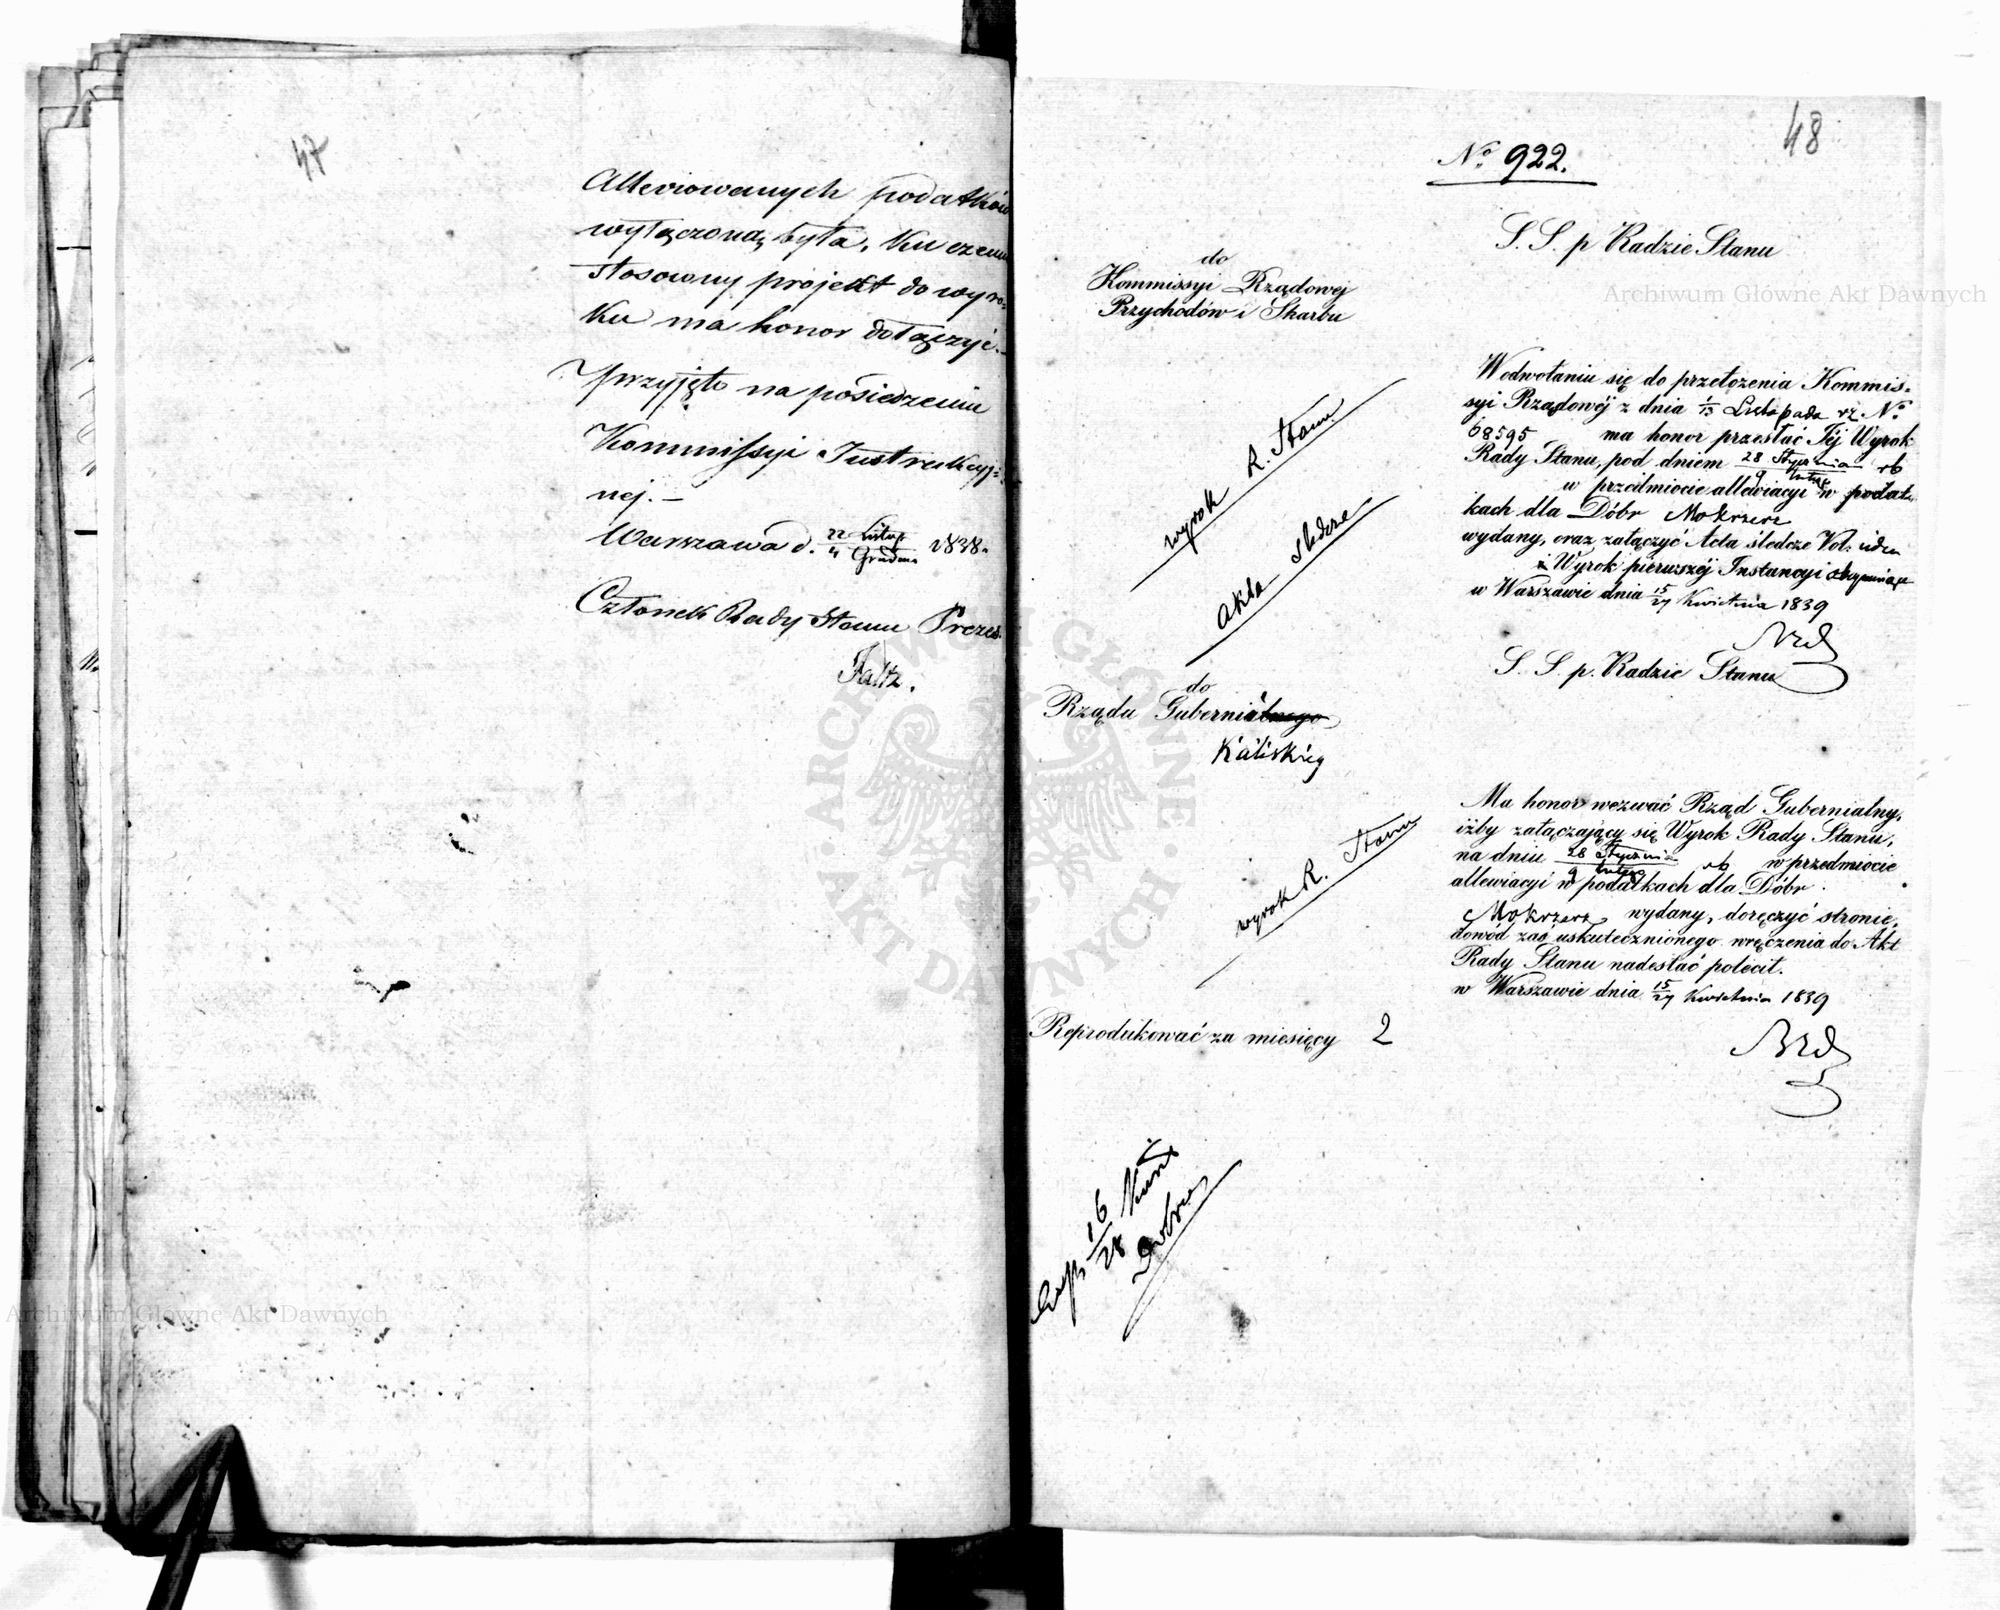 47
Alleviowanych podatków
wyłączoną była, ku czemu
stosowny projekt do wyro-
ku ma honor dołączyć.—
Przyjęto na posiedzeniu
Kommissyi Instrukcyj-
nej.—
Warszawa d. 22 Listop / 4 Grudnia 1838.
Członek Rady Stanu Prezes
Faltz.
48
No 922.
S. S. p Radzie Stanu
do
Kommissyi Rządowej
Przychodów i Skarbu
W odwołaniu się do przełożenia Kommis-
syi Rządowéj z dnia 1/13 Listopada rz. No
68595 ma honor przesłać Jéj Wyrok
Rady Stanu, pod dniem 28 Stycznia / 9 Lutego rb
w przedmiocie allewiacyi w podat-
kach dla Dóbr Mokrzesz
wydany, oraz załączyć Acta śledcze Vol:
i Wyrok pierwszéj Instancyi
w Warszawie dnia 15/27 Kwietnia 1839
wyrok R. Stanu
akta śledcze
S. S. p. Radzie Stanu
do
Rządu Gubernialnego
Kaliskieg
Ma honor wezwać Rząd Gubernialny,
iżby załączający się Wyrok Rady Stanu,
na dniu 28 Stycznia / 9 Lutego rb w przedmiocie
allewiacyi w podatkach dla Dóbr
Mokrzesz wydany, doręczyć stronie,
dowód zaś uskutecznionego wręczenia do Akt
Rady Stanu nadesłać polecił.
w Warszawie dnia 15/27 Kwietnia 1839
wyrok R. Stanu
Reprodukować za miesięcy 2
16/28 Kwiet
Archiwum Główne Akt Dawnych
Archiwum Główne Akt Dawnych
ARCHIWUM GŁÓWNE · AKT DAWNYCH ·